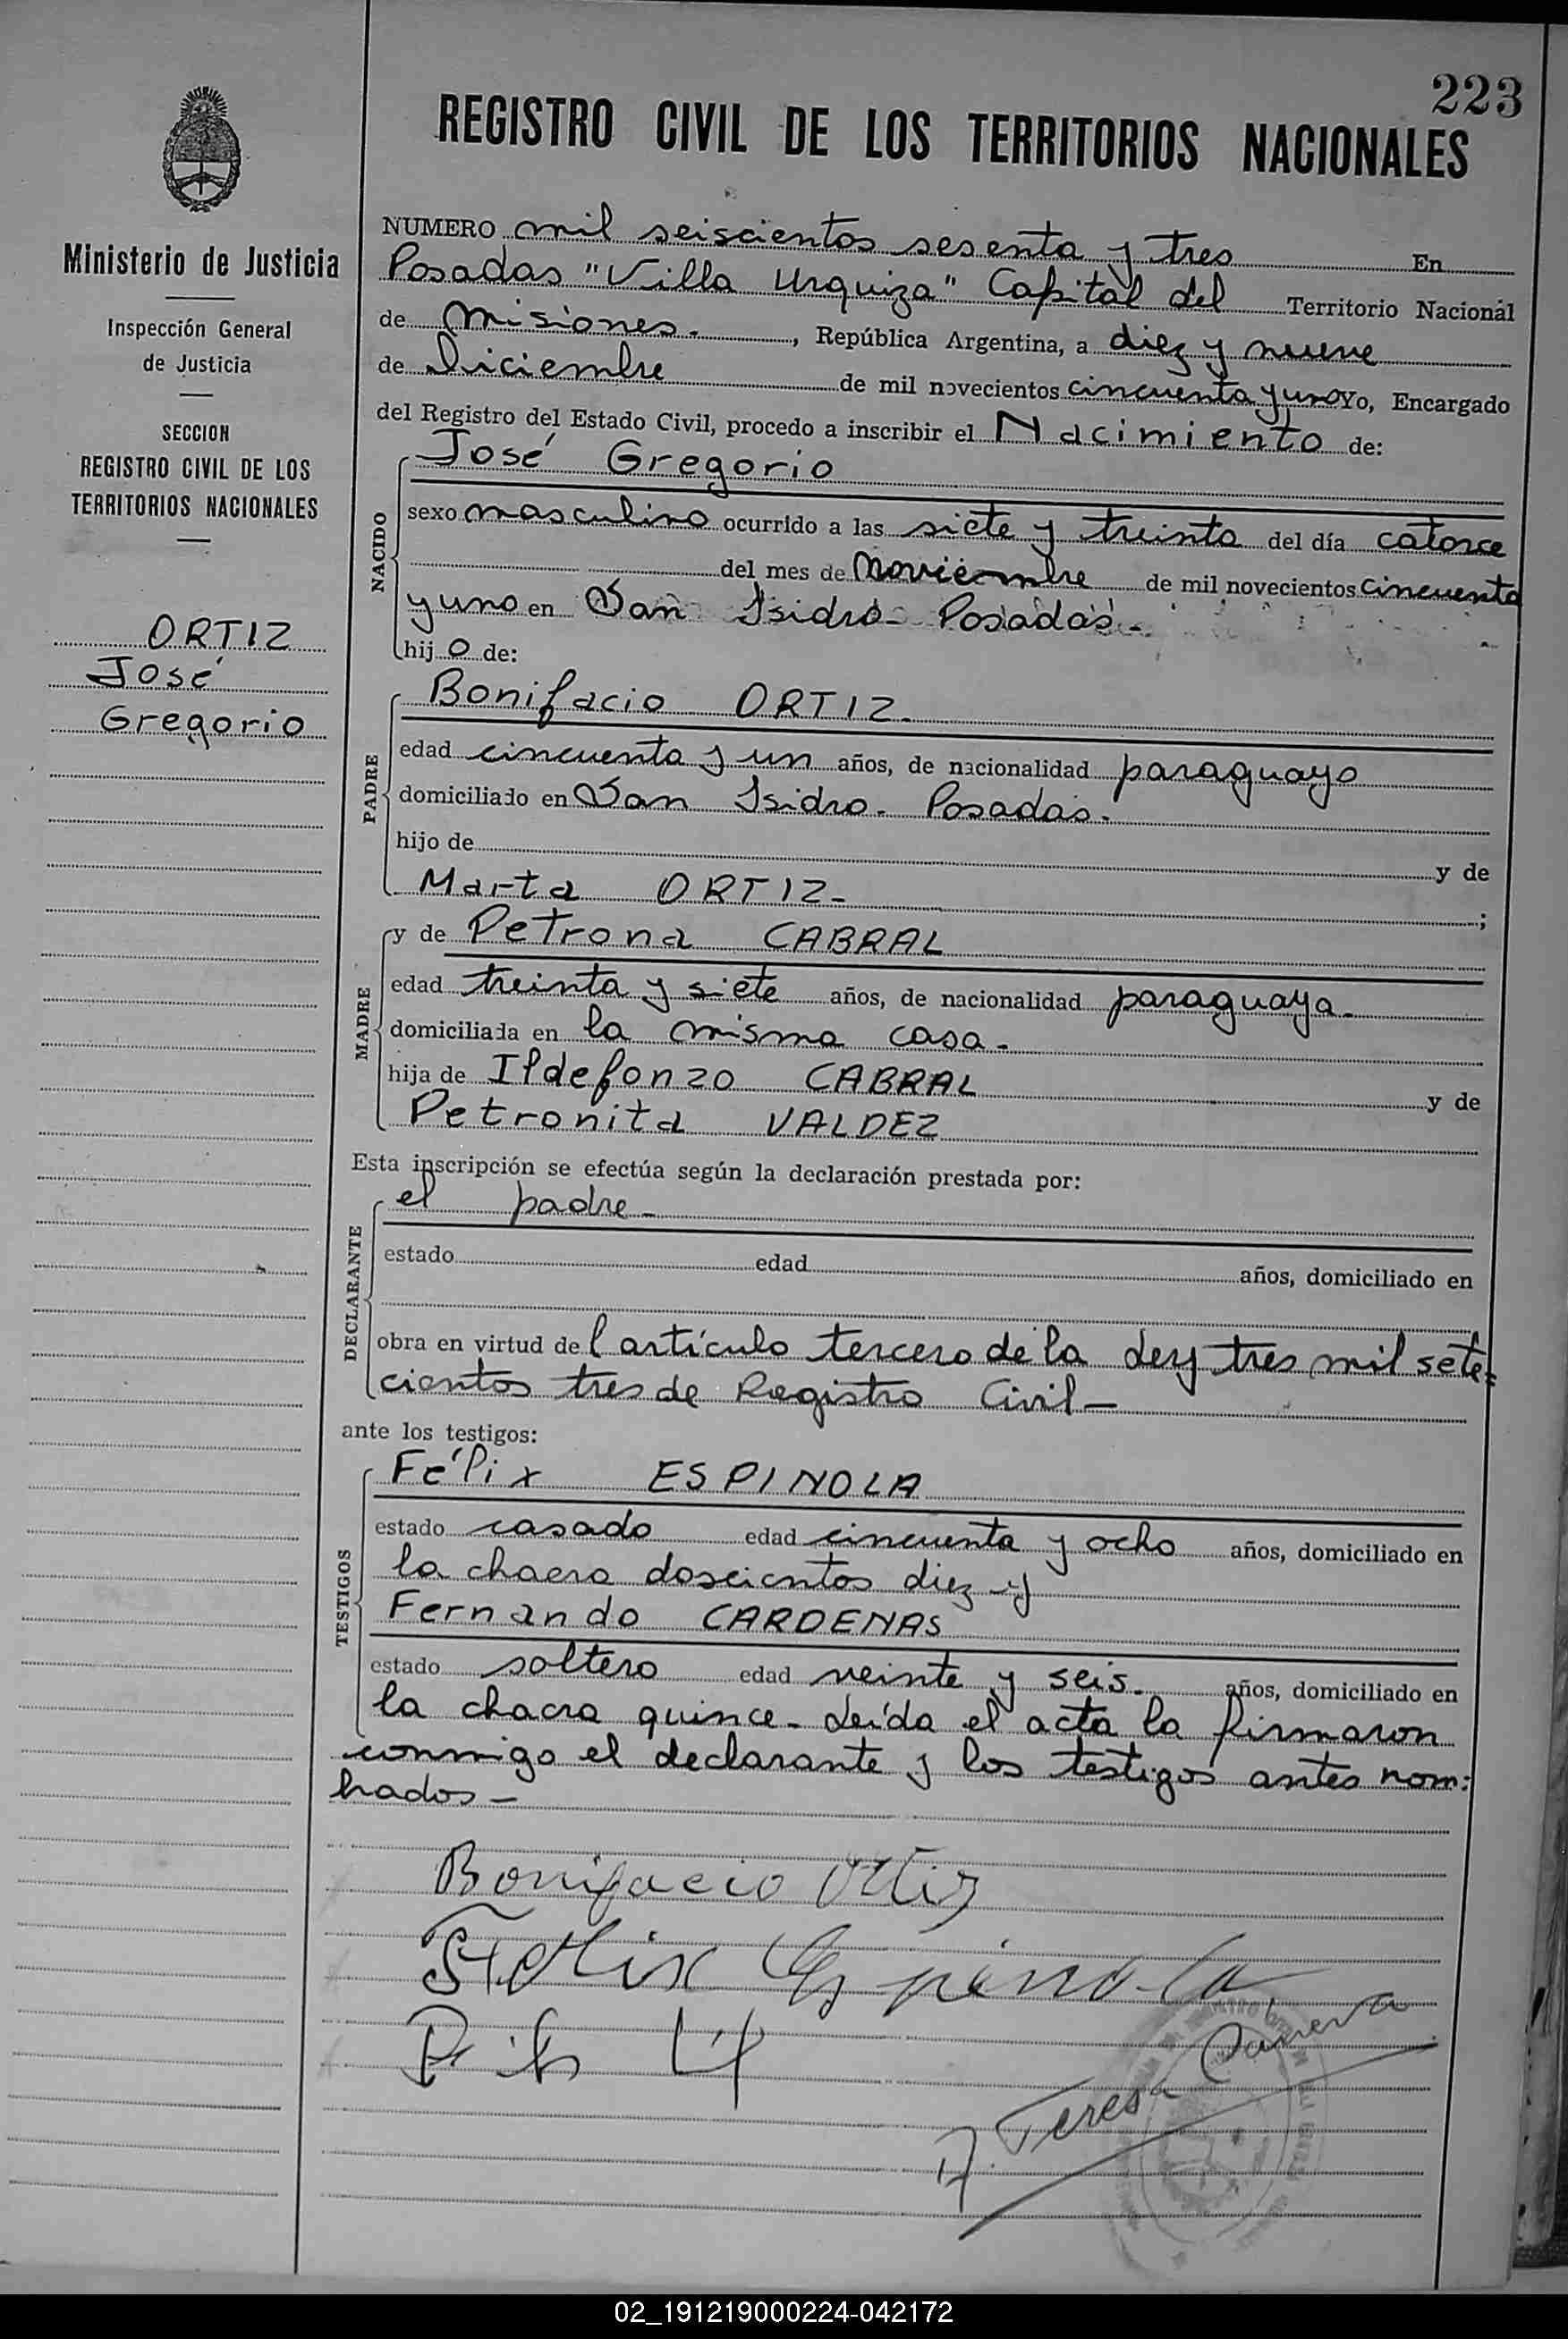 223
REGISTRO CIVIL DE LOS TERRITORIOS NACIONALES
Ministerio de Justicia
Inspección General
de Justicia
SECCION
REGISTRO CIVIL DE LOS
TERRITORIOS NACIONALES
ORTIZ
José
Gregorio
NUMERO mil seiscientos sesenta y tres En
Posadas "Villa Urquiza" Capital del Territorio Nacional
de Misiones., República Argentina, a diez y nueve
de Diciembre de mil novecientos cincuenta y uno Yo, Encargado
del Registro del Estado Civil, procedo a inscribir el Nacimiento de:
NACIDO
José Gregorio
sexo masculino ocurrido a las siete y treinta del día catorce
del mes de Noviembre de mil novecientos cincuenta
y uno en San Isidro - Posadas.-
hijo de:
PADRE
Bonifacio ORTIZ.
edad cincuenta y un años, de nacionalidad paraguayo
domiciliado en San Isidro - Posadas.
hijo de y de
Marta ORTIZ- ;
MADRE
y de Petrona CABRAL
edad treinta y siete años, de nacionalidad paraguaya-
domiciliada en la misma casa-
hija de Ildefonzo CABRAL y de
Petronita VALDEZ
Esta inscripción se efectúa según la declaración prestada por:
DECLARANTE
el padre-
estado edad años, domiciliado en
obra en virtud del artículo tercero de la Ley tres mil sete=
cientos tres de Registro Civil-
ante los testigos:
TESTIGOS
Félix ESPINOLA
estado casado edad cincuenta y ocho años, domiciliado en
la chacra doscientos diez y
Fernando CARDENAS
estado soltero edad veinte y seis- años, domiciliado en
la chacra quince- Leída el acta la firmaron
conmigo el declarante y los testigos antes nom=
brados-
Bonifacio Ortiz
Felix Espinola
Teresa
02_191219000224-042172